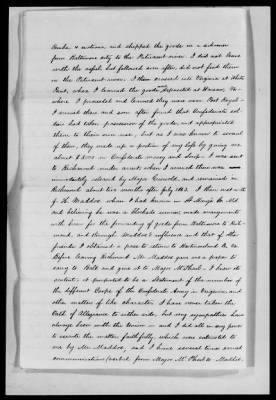 Books & notions, and shipped the goods in a schooner
from Baltimore city to the Patuxent river. I did not leave
with the vessel, but followed soon after, did not find them
in the Patuxent river. I then crossed into Virginia at White
Point, when I learned the goods were deposited at
where I proceeded and learned they were near Port Royal.
I went there and soon after found that Confederate sol-
diers had taken possession of the goods, and appropriated
them to their own use, but as I was known to several
of them, they made up a portion of my loss by giving me
about $ in Confederate money and Scrip. I was sent
to Richmond under arrest, when I reached there was
immediately released by Major Griswold, and remained in
Richmond about two months after July 1863. I then met with
J. H. Maddox whom I had known in St Mary's Co. Md
and believing he was a blockade runner, made arrangements
with him for the forwarding of goods from Baltimore to Rich-
mond, and through Maddox's influence and that of his
friends I obtained a pass to return to Westmoreland Co. Va.
Before leaving Richmond Mr Maddox gave me a paper to
carry to Balt. and give it to Major McPhail. I know its
contents, it purported to be a statement of the number of
the different Corps of the Confederate Army in Virginia, and
other matters of like character. I have never taken the
Oath of Allegiance to either side, but my sympathies have
always been with the Union — and I did all in my power
to execute the matter faithfully, which was entrusted to
me by Mr Maddox, and I have several times carried
communications (verbal) from Major McPhail to Maddox.